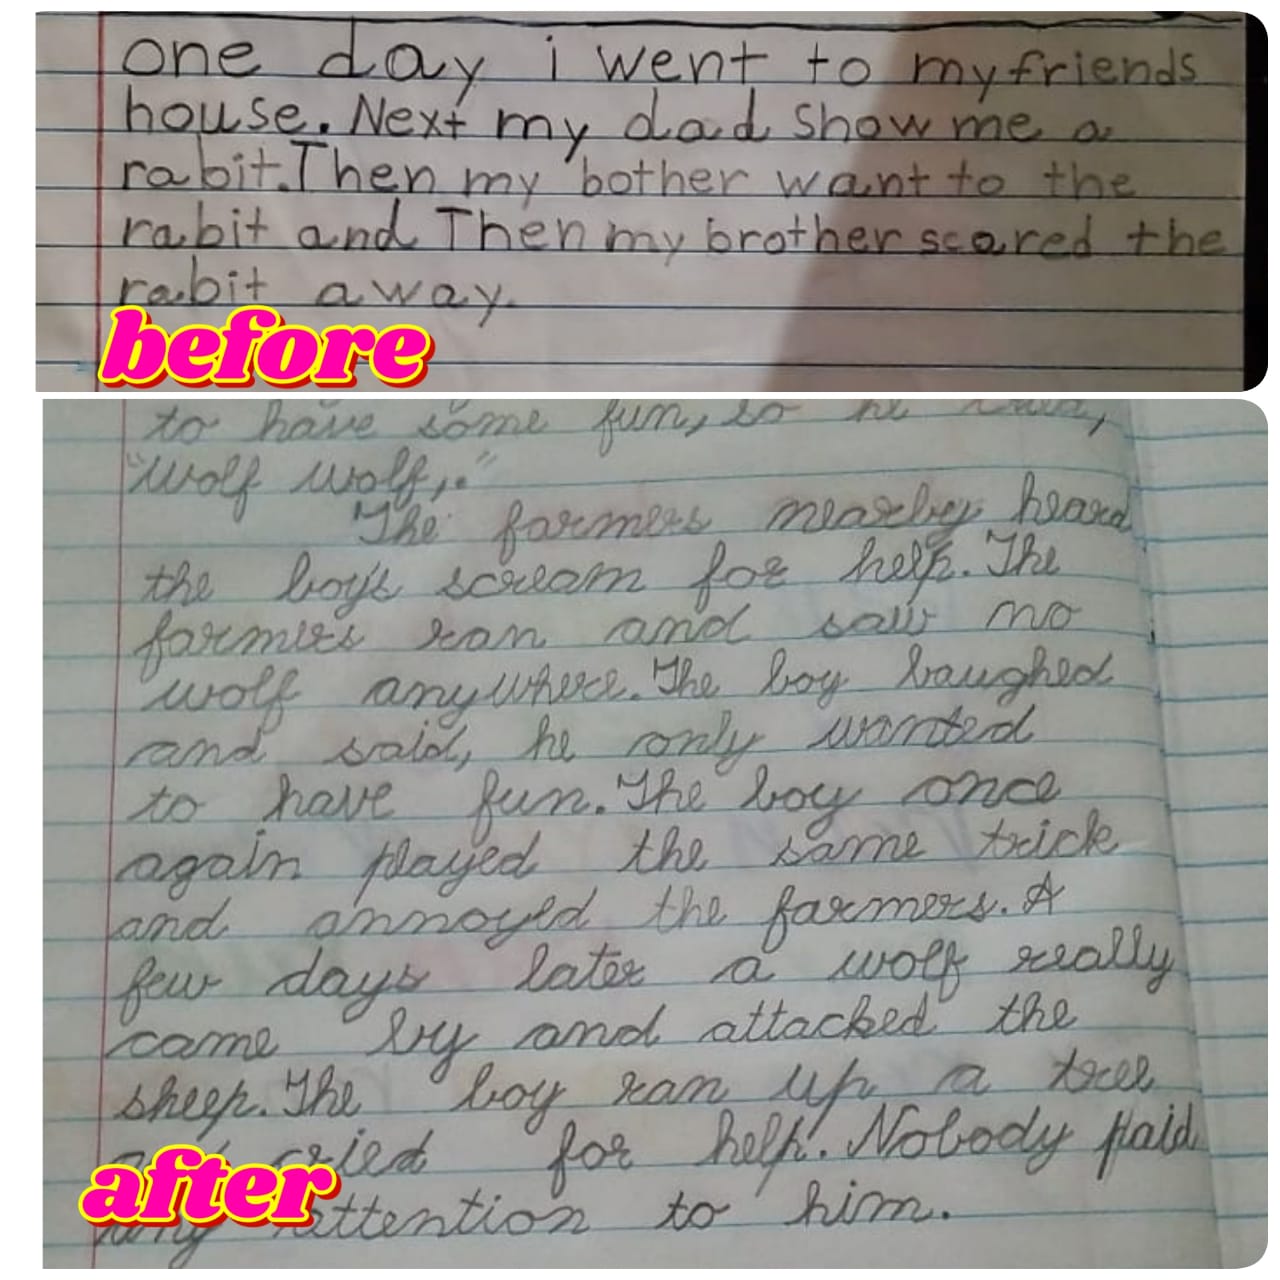 one day i went to my friends
house. Next my dad show me a
rabit. Then my bother want to the
rabit and Then my brother scared the
rabit away.
before
to have some fun, so he
"Wolf wolf,."
The farmers nearby heard
the boy's scream for help. The
farmers ran and saw no
wolf anywhere. The boy laughed
and said, he only wanted
to have fun. The boy once
again played the same trick
and annoyed the farmers. A
few days later a wolf really
came by and attacked the
sheep. The boy ran up a tree
cried for help. Nobody paid
after
attention to him.